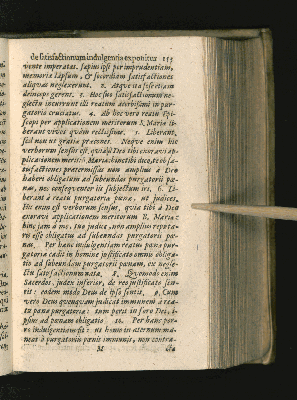 de satisfactionum indulgentia expositus 153
vente imperatas. sæpius ipsi per imprudentiam,
memoriæ lapsum, & socordiam satisfactiones
aliquas neglexerunt. 2. Atque ita iustitiam
deinceps gerent. 3. Hoc suo satisfactionum ne-
glectu incurrunt illi reatum acerbissimi in pur-
gatorio cruciatus. 4. Ab hoc vero reatu Epi-
scopi per applicationem meritorum B. Mariæ li-
berant vivos quàm rectissime. 5. Liberant,
scil non ut gratia præcones. Neque enim hic
verborum sensus est, quia Deo tibi curavi ap-
plicationem meritis Mariæ; hinc tibi dico, te ob sa-
tisfactiones prætermissas non amplius à Deo
habere obligatum ad subeundas purgatorii poe-
nas, nec consequenter in subjectum iri. 6. Li-
berant à reatu purgatoriæ pœnæ, ut judices.
Hic enim est verborum sensus, quia tibi à Deo
curavi applicationem meritorum B. Mariæ:
hinc jam à me, tuo judice, non amplius repeta-
ris esse obligatus ad subeundas purgatorii poe-
nas. Per hanc indulgentiam reatus pœnæ pur-
gatoriæ cadit in homine justificato omnis obliga-
tio ad subeundam purgatorii pœnam, ex negle-
ctu satisfactionum nata. 8. Quemodo enim
Sacerdos, judex inferior, de reo justificato sen-
tit: eodem modo Deus de ipso sentit. 9. Cum
vero Deus quenquam judicat immunem à rea-
tu pœnæ purgatoriæ: tum perit in foro Dei, i-
psius ad pœnam obligatio. 10. Per hanc por-
ro indulgentiam fit: ut homo in æternum ma-
neat à purgatoriis pœnis immunis, non contra-
M
cta